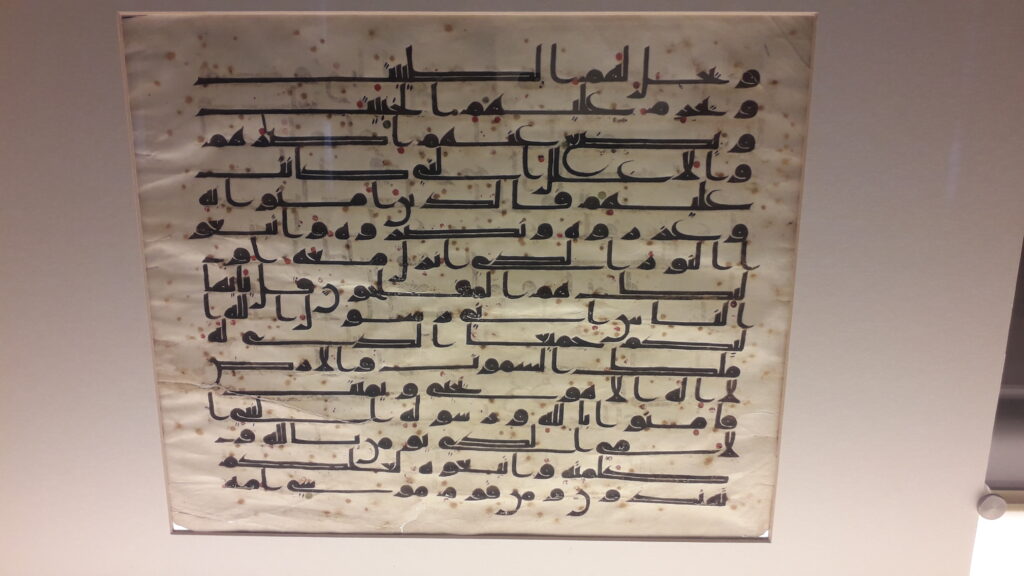 ويحل لهم الطيبت
ويحرم عليهم الخبيث
ويضع عنهم اصرهم
والاغلل التي كانت
عليهم فالذين امنوا به
وعزروه ونصروه واتبعو
ا النور الذي انزل معه او
لئك هم المفلحون قل يايها
الناس اني رسول الله ا
ليكم جميعا الذي له
ملك السموت والارض
لا اله الا هو يحيي ويميت
فامنوا بالله ورسوله النبي ا
لامي الذي يومن بالله و
كلمته واتبعوه لعلكم
تهتدون ومن قوم موسى امه